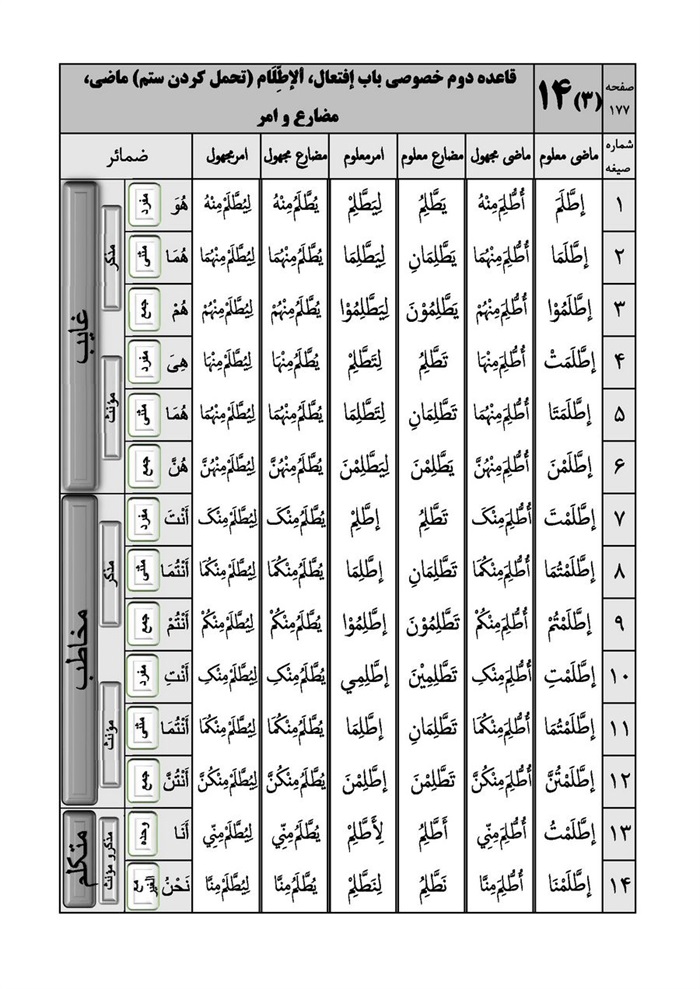 صفحه ۱۷۷ ۱۴(۳) قاعده دوم خصوصی باب إفتعال، ألإطِّلَام (تحمل کردن ستم) ماضی،
مضارع و امر
شماره صیغه ماضی معلوم ماضی مجهول مضارع معلوم امرمعلوم مضارع مجهول امرمجهول ضمائر
۱ إطَّلَمَ أُطُّلِمَ مِنْهُ يَطَّلِمُ لِيَطَّلِمْ يُطَّلَمُ مِنْهُ لِيُطَّلَمْ مِنْهُ هُوَ مفرد
۲ إطَّلَمَا أُطُّلِمَ مِنْهُمَا يَطَّلِمَانِ لِيَطَّلِمَا يُطَّلَمُ مِنْهُمَا لِيُطَّلَمْ مِنْهُمَا هُمَا مثنی مذکر
۳ إطَّلَمُوْا أُطُّلِمَ مِنْهُمْ يَطَّلِمُوْنَ لِيَطَّلِمُوْا يُطَّلَمُ مِنْهُمْ لِيُطَّلَمْ مِنْهُمْ هُمْ جمع غایب
۴ إطَّلَمَتْ أُطُّلِمَ مِنْهَا تَطَّلِمُ لِتَطَّلِمْ يُطَّلَمُ مِنْهَا لِيُطَّلَمْ مِنْهَا هِيَ مفرد
۵ إطَّلَمَتَا أُطُّلِمَ مِنْهُمَا تَطَّلِمَانِ لِتَطَّلِمَا يُطَّلَمُ مِنْهُمَا لِيُطَّلَمْ مِنْهُمَا هُمَا مثنی مؤنث
۶ إطَّلَمْنَ أُطُّلِمَ مِنْهُنَّ يَطَّلِمْنَ لِيَطَّلِمْنَ يُطَّلَمُ مِنْهُنَّ لِيُطَّلَمْ مِنْهُنَّ هُنَّ جمع
۷ إطَّلَمْتَ أُطُّلِمَ مِنْکَ تَطَّلِمُ إطَّلِمْ يُطَّلَمُ مِنْکَ لِيُطَّلَمْ مِنْکَ أَنْتَ مفرد
۸ إطَّلَمْتُمَا أُطُّلِمَ مِنْکُمَا تَطَّلِمَانِ إطَّلِمَا يُطَّلَمُ مِنْکُمَا لِيُطَّلَمْ مِنْکُمَا أَنْتُمَا مثنی مذکر
۹ إطَّلَمْتُمْ أُطُّلِمَ مِنْکُمْ تَطَّلِمُوْنَ إطَّلِمُوْا يُطَّلَمُ مِنْکُمْ لِيُطَّلَمْ مِنْکُمْ أَنْتُمْ جمع مخاطب
۱۰ إطَّلَمْتِ أُطُّلِمَ مِنْکِ تَطَّلِمِيْنَ إطَّلِمِي يُطَّلَمُ مِنْکِ لِيُطَّلَمْ مِنْکِ أَنْتِ مفرد
۱۱ إطَّلَمْتُمَا أُطُّلِمَ مِنْکُمَا تَطَّلِمَانِ إطَّلِمَا يُطَّلَمُ مِنْکُمَا لِيُطَّلَمْ مِنْکُمَا أَنْتُمَا مثنی مؤنث
۱۲ إطَّلَمْتُنَّ أُطُّلِمَ مِنْکُنَّ تَطَّلِمْنَ إطَّلِمْنَ يُطَّلَمُ مِنْکُنَّ لِيُطَّلَمْ مِنْکُنَّ أَنْتُنَّ جمع
۱۳ إطَّلَمْتُ أُطُّلِمَ مِنِّي أَطَّلِمُ لِأَطَّلِمْ يُطَّلَمُ مِنِّي لِيُطَّلَمْ مِنِّي أَنَا وحده مذکر و مؤنث متکلم
۱۴ إطَّلَمْنَا أُطُّلِمَ مِنَّا نَطَّلِمُ لِنَطَّلِمْ يُطَّلَمُ مِنَّا لِيُطَّلَمْ مِنَّا نَحْنُ مع الغیر